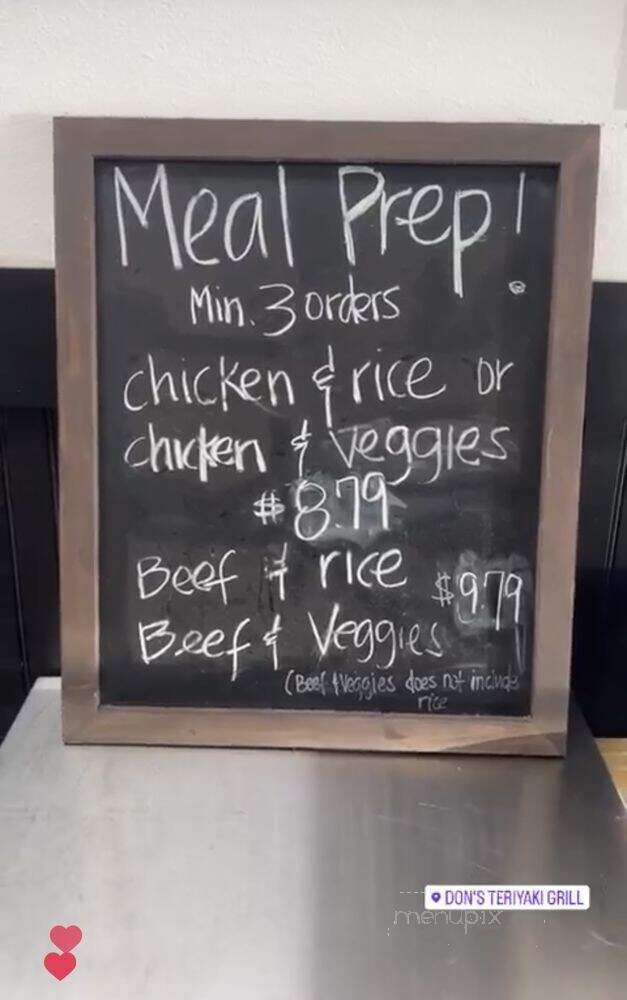 Meal Prep!
Min. 3 orders
chicken & rice or
chicken & veggies
$8.79
Beef & rice
$9.79
Beef & Veggies
(Beef & Veggies does not include
rice
DON'S TERIYAKI GRILL
menupix